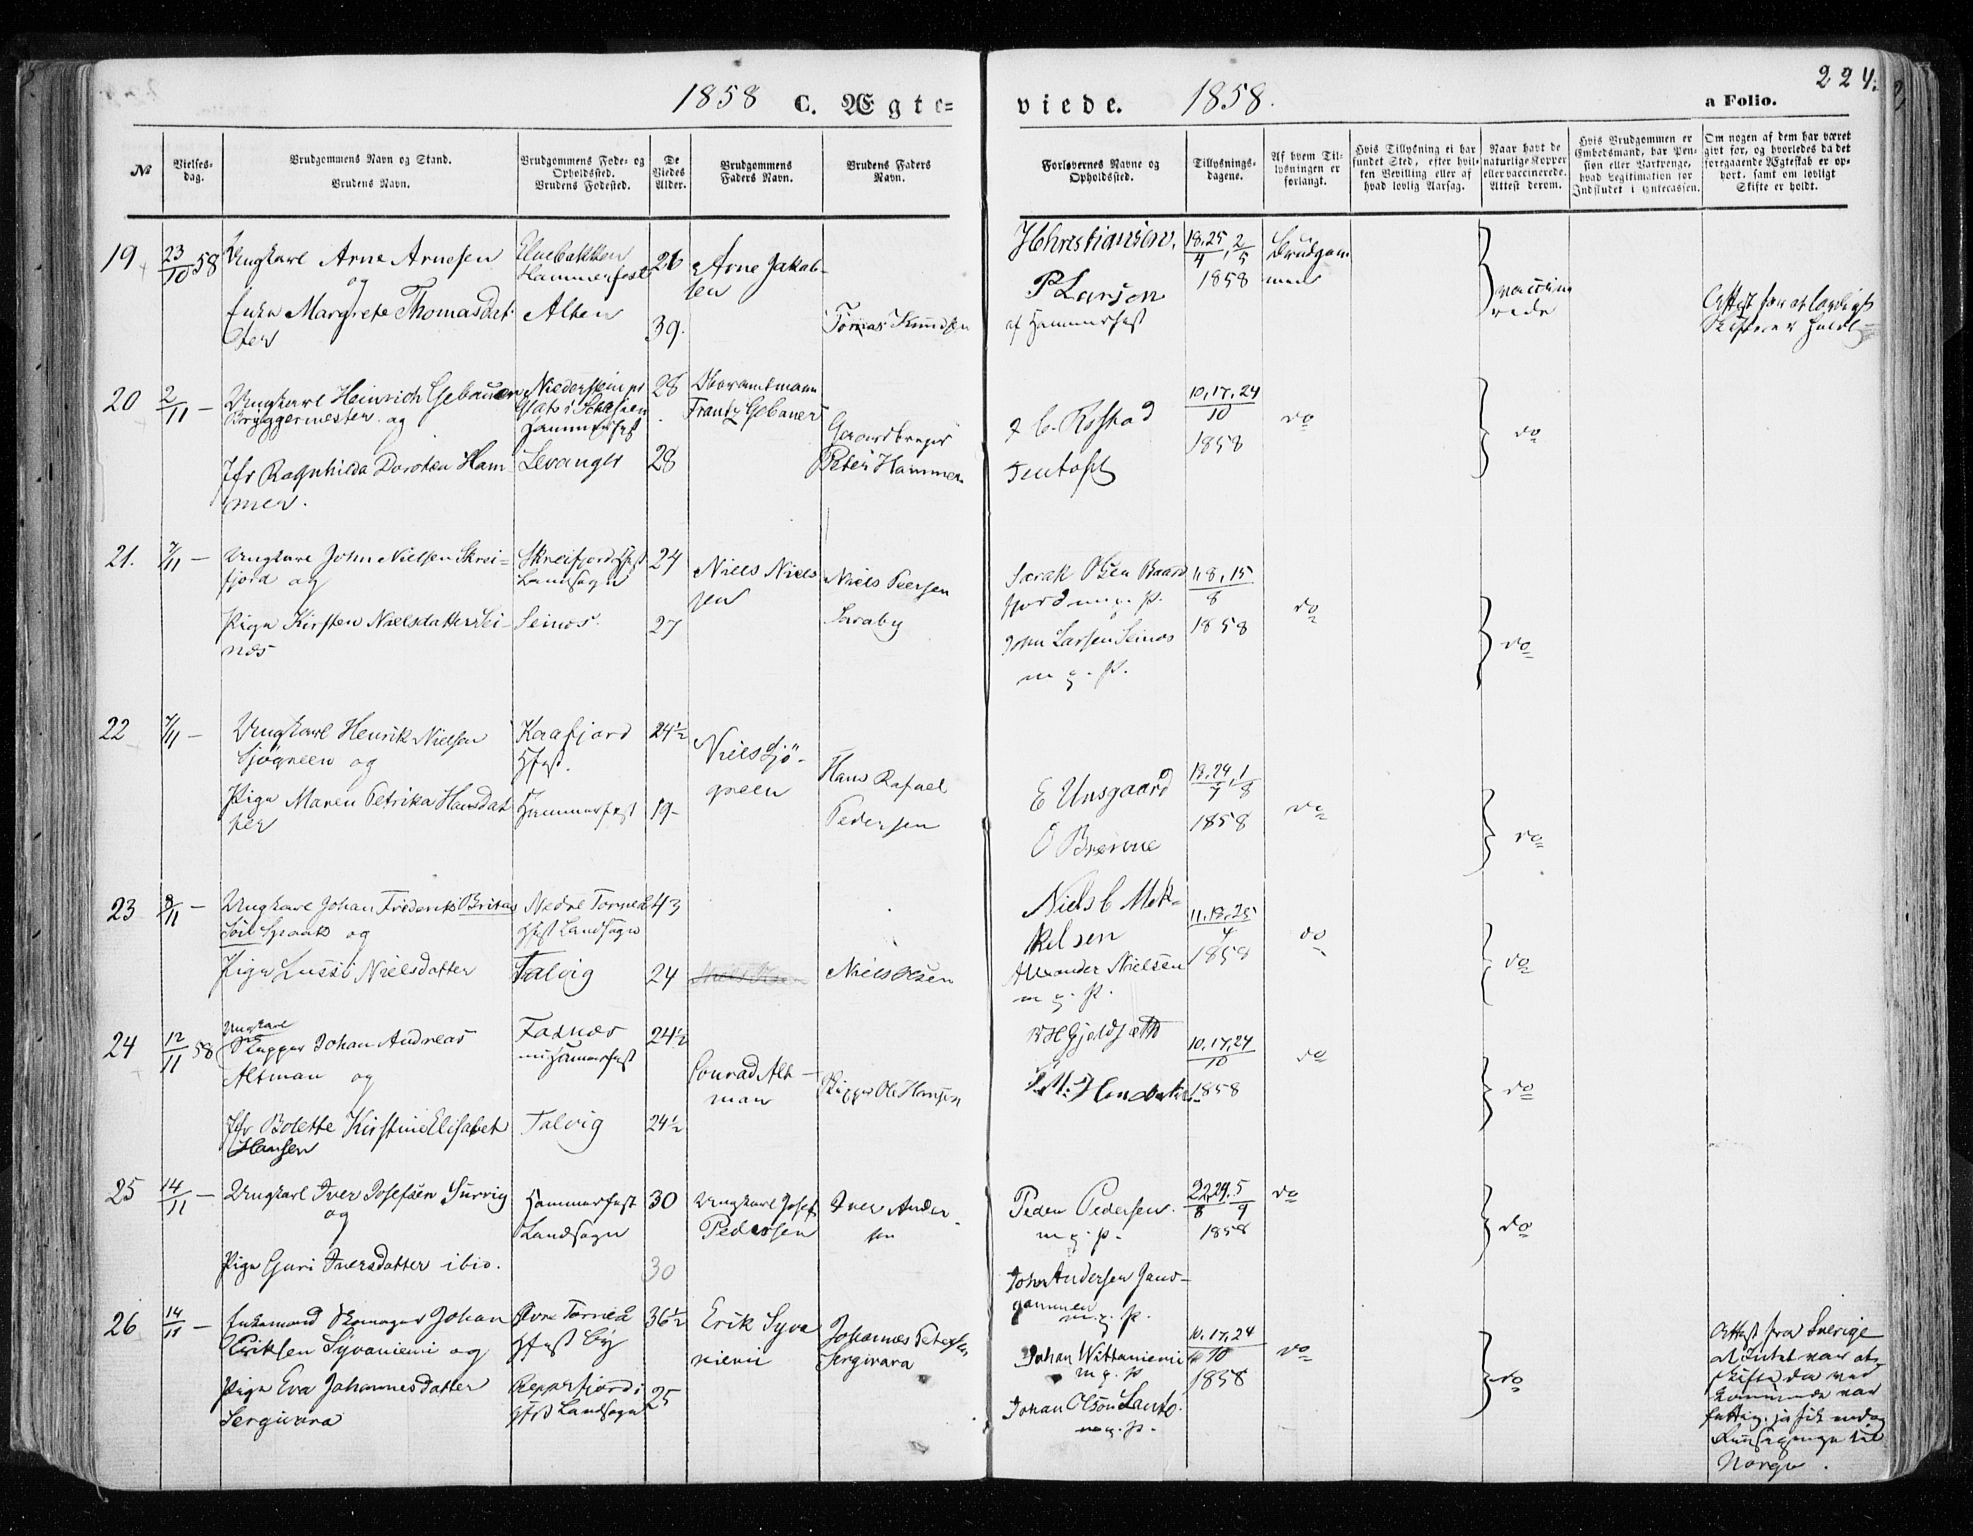 1858 C. Ægte=
viede. 1858.
224.
a Folio.
No
Vielses-
dag.
Brudgommens Navn og Stand.
Brudens Navn.
Brudgommens Føde- og
Opholdssted.
Brudens Fødested.
De
Viedes
Alder.
Brudgommens
Faders Navn.
Brudens Faders
Navn.
Forlovernes Navne og
Opholdssted.
Tillysnings-
dagene.
Af hvem Til-
lysningen er
forlangt.
Hvis Tillysning ei har
fundet Sted, efter hvil-
ken Bevilling eller af
hvad lovlig Aarsag.
Naar havt de
naturlige Kopper
eller vaccinerede.
Attest derom.
Hvis Brudgommen er
Embedsmand, har Pen-
sion eller Vartpenge,
hvad Legitimation for
Indskudet i Enkecassen.
Om nogen af dem har været
givt før, og hvorledes da det
foregaaende Ægteskab er op-
hørt, samt om lovligt
Skifte er holdt.
19 23/10 58 Ungkarl Arne Arnesen
og
Enke Margrete Thomasdat
ter
Hammerfest
Alten
26
39.
Arne Jakob-
sen
Tomas Knudsen
H Christiansen,
P Larsen
af Hammerfest
18.25/4, 2/5
1858
Brudgom
men
vaccine
rede
Attest for at lovligt
Skifte er holdt
20 2/11 - Ungkarl Heinrich Gebauer
Bryggermester og
Jfr Ragnhilda Dorotea Ham
mer.
Hammerfest
Levanger
28
28
Frantz Gebauer
Gaardbruger
Peter Hammer
10, 17, 24/10
1858
do
do
21. 7/11 - Ungkarl John Nielsen Skrei-
fjord og
Pige Kirsten Nielsdatter Sei-
næs
Skreifjord Hfst
Landsogn
Seinæs.
24
27
Niels Niel
sen
Niels Peersen
Saraby
Isak Olsen Baard
fjord m. g. P.
John Larsen Seinæs
m g. P.
1, 8, 15/8
1858
do
do
22 7/11 - Ungkarl Henrik Nielsen
Sjøgreen og
Pige Maren Petrika Hansdat
ter
Kaafjord
Hfest.
Hammerfest
24½
19-
Niels Sjö-
green
Hans Rafael
Pedersen
E Unsgaard
O Breivne
18.24/7, 1/8
1858
do
do
23 8/11 - Ungkarl Johan Frederik Britas
og
Pige Lussi Nielsdatter
Nedre Torneå
Hfest Landsogn
Talvig
43
24
Niels Olsen
Niels C Mik-
kelsen
Alexander Nielsen
m g. P.
11, 18, 25/4
1858
do
do
24 12/11 58 Ungkarl
Skipper Johan Andreas
Altman og
Jfr Bolette Kirstine Elisabet
Hansen
Hammerfest
Talvig
24½
24½
Conrad Alt-
man
Skipper Ole Hansen
10, 17, 24/10
1858
do
do
25 14/11 - Ungkarl Iver Josefsen Survig
og
Pige Guri Iversdatter ibid.
Hammerfest
Landsogn
30
30
Ungkarl Josef
Pedersen
Iver Ander-
sen
Peder Pedersen
m g. P.
John Andersen Jans-
gammen
m. g. P.
22.29/8, 5/9
1858
do
do
26 14/11 - Enkemand Skomager Johan
Eriksen Syvaniemi og
Pige Eva Johannesdatter
Sergivara
Øvre Torneå
Hfest By
Repparfjord i
Hfst Landsogn
36½
25
Erik Syva
niemi
Johannes Petersen
Sergivara
Johan Wittaniemi
m g. P.
Johan Olson Lanto.
m g. P.
10, 17, 24/10
1858
do
do
Attest fra Sverige
at Intet var at
skifte da ved
kommende var
fattig, ja fik endog
til
Norge.